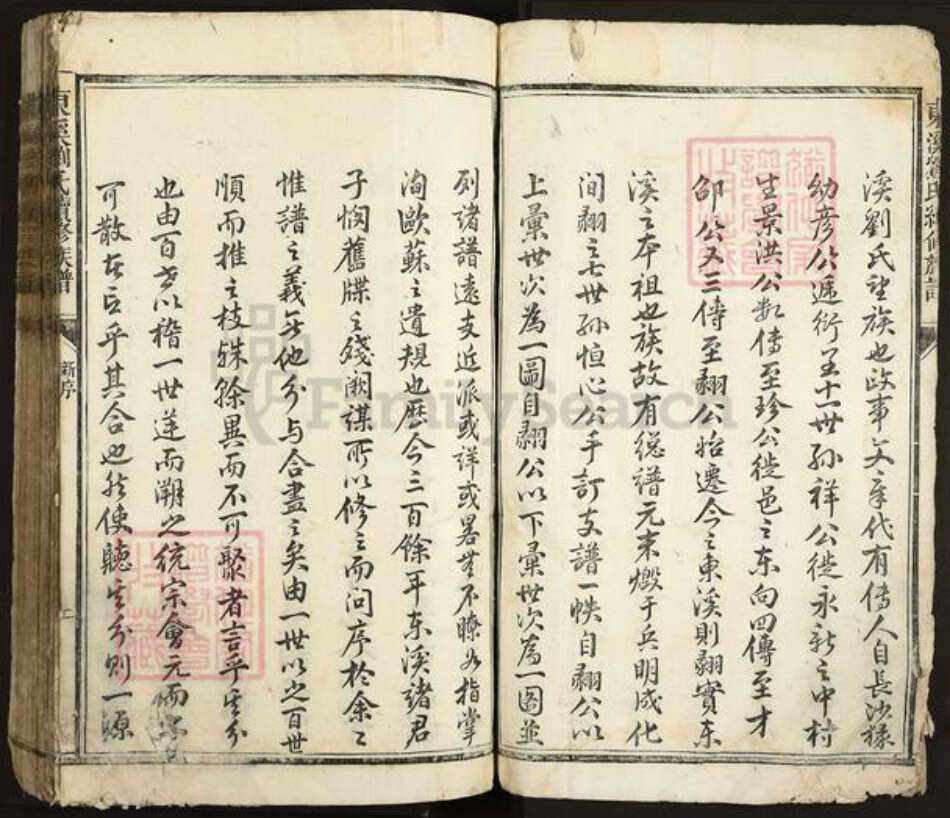 溪劉氏望族也政事文章代有傳人自長沙掾
幼彥公遞衍至十一世孫祥公徙永新之中村
生景洪公数傳至珍公徙邑之东向四傳至才
邵公又三傳至翱公始遷今之東溪則翱實东
溪之本祖也族故有總譜元末燬于兵明成化
间翱之七世孫恒心公手訂支譜一帙自翱公以
上彙世次為一圖自翱公以下彙世次為一圖並
列诸譜遠支近派或详或畧無不瞭如指掌
洵歐蘇之遺規也歷今三百餘年东溪諸君
子憫舊牒之殘阙謀所以修之而问序於余〻
惟譜之義無他分与合盡之矣由一世以之百世
順而推之枝殊條異而不可聚者言乎其分
也由百世以稽一世逆而溯之統宗會元而
可散者言乎其合也然使聽其分則一源
東溪劉氏續修族譜
新序
二
東溪劉氏續修族譜
FamilySearch